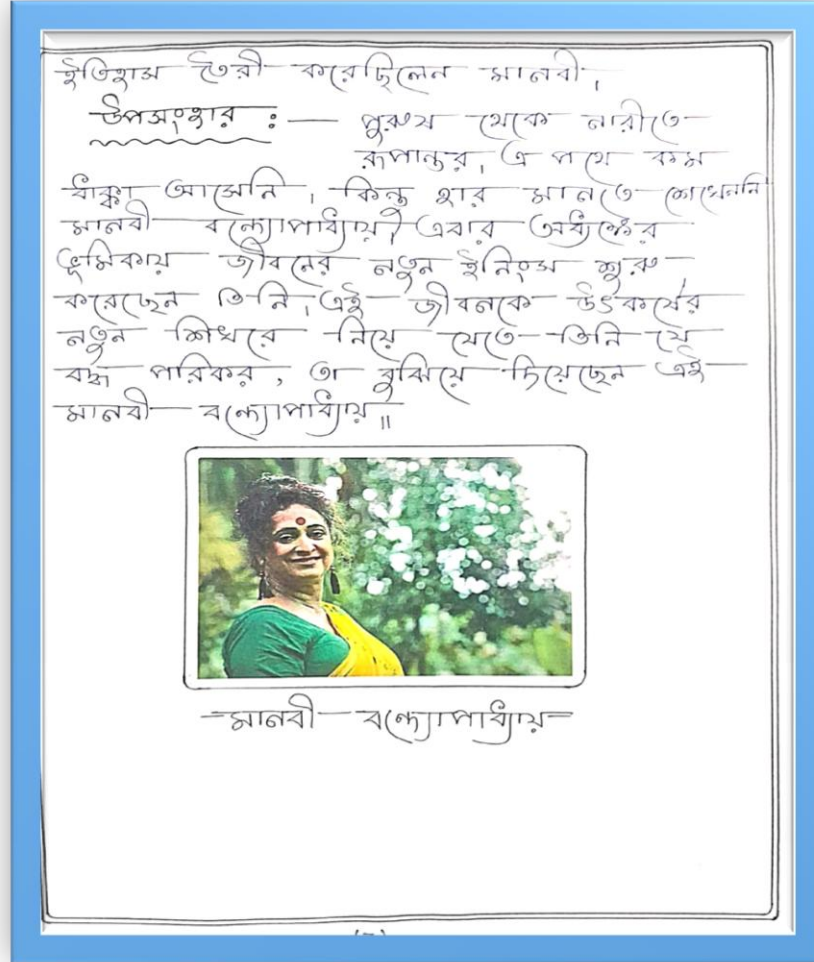 ইতিহাস তৈরী করেছিলেন মানবী।
উপসংহার :— পুরুষ থেকে নারীতে
রূপান্তর, এ পথে কম
ধাক্কা আসেনি। কিন্তু হার মানতে শেখেননি
মানবী বন্দ্যোপাধ্যায়। এবার অধ্যক্ষের
ভূমিকায় জীবনের নতুন ইনিংস শুরু
করেছেন তিনি। এই জীবনকে উৎকর্ষের
নতুন শিখরে নিয়ে যেতে তিনি যে
বদ্ধ পরিকর, তা বুঝিয়ে দিয়েছেন এই
মানবী বন্দ্যোপাধ্যায়॥
মানবী বন্দ্যোপাধ্যায়